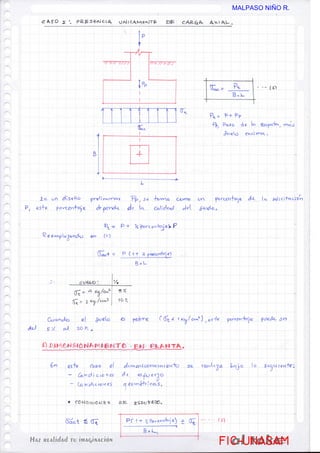 MALPASO NIÑO R.
CASO 2 : PRESENCIA UNICAMENTE DE CARGA AXIAL.
P
Pp
σact = Pt / B×L --- (α)
σt
Pt = P + Pp
Pp Peso de la zapata, más suelo encima.
σact
B
L
En un diseño preliminar Pp, se toma como un porcentaje de la solicitación
P, este porcentaje depende de la calidad del suelo.
Pt = P + %porcentaje P
Reemplazando en (α)
σact = P (1 + % porcentaje) / B×L
CUANDO: %
σt = 4 kg/cm² 8%
σt = 2 kg/cm² 10%
Cuando el suelo es pobre (σt < 1 kg/cm²), este porcentaje puede ser
del 15% al 20%.
1) DIMENSIONAMIENTO EN PLANTA.
En este caso el dimensionamiento se realiza bajo lo siguiente:
- Condiciones de esfuerzo
- Condiciones geométricas.
* CONDICIONES DE ESFUERZO.
σact ≤ σt
P(1 + % Porcentaje) / B×L ≤ σt --- (1)
Haz realidad tu imaginación
FIC-UNASAM